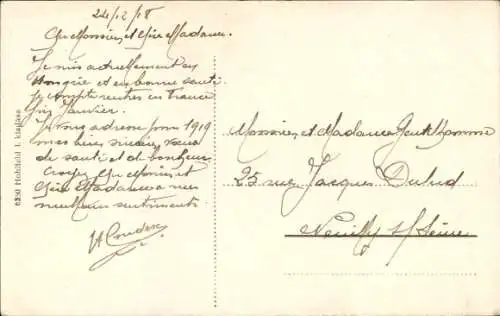 24/12/18
Cher Monsieur et Chère Madame.
Je suis actuellement en
Hongrie et en bonne santé.
Je compte rentrer en France
fin Janvier.
Je vous adresse pour 1919
mes bien sincères vœux
de santé et de bonheur
Croyez Cher Monsieur et
Chère Madame à mes
meilleurs sentiments.
Monsieur et Madame Gentilhomme
25 rue Jacques Dulud
Neuilly s/Seine